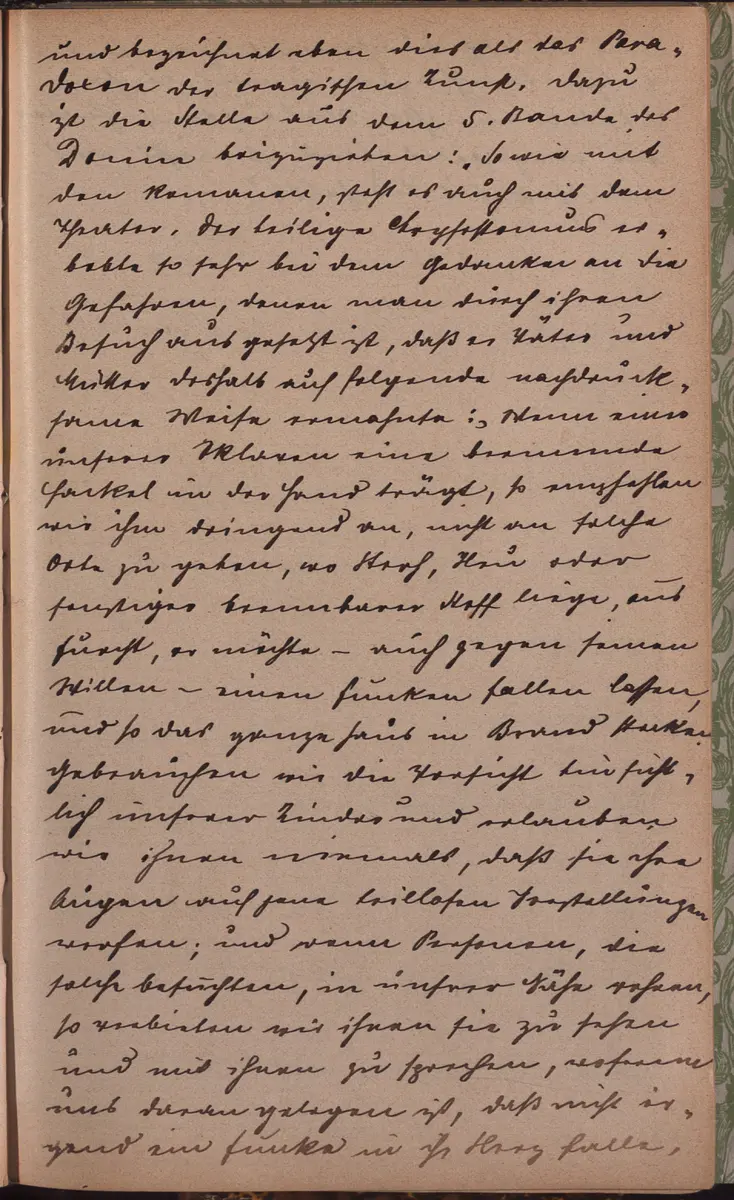 und bezeichnet eben dies als das Para-
doxon der tragischen Kunst. Dazu
ist die Stelle aus dem 5. Bande des
Donin beizuziehen: „So wie mit
den Romanen, steht es auch mit dem
Theater. Der heilige Chrysostomus er-
bebte so sehr bei dem Gedanken an die
Gefahren, denen man durch ihren
Besuch ausgesetzt ist, daß er Väter und
Mütter deshalb auf folgende nachdruck-
same Weise ermahnte: „Wenn einer
unserer Sklaven eine brennende
Fackel in der Hand trägt, so empfehlen
wir ihm dringend an, nicht an solche
Orte zu gehen, wo Stroh, Heu oder
sonstiger brennbarer Stoff liege, aus
Furcht, er möchte – auch gegen seinen
Willen – einen Funken fallen lassen,
und so das ganze Haus in Brand stecken.
Gebrauchen wir die Vorsicht hinsicht-
lich unserer Kinder und erlauben
wir ihnen niemals, daß sie ihre
Augen auf jene heillosen Vorstellungen
werfen; und wenn Personen, die
solche besuchten, in unsrer Nähe wohnen,
so verbieten wir ihnen sie zu sehen
und mit ihnen zu sprechen, woferne
uns daran gelegen ist, daß nicht ir-
gend ein Funke in ihr Herz falle,